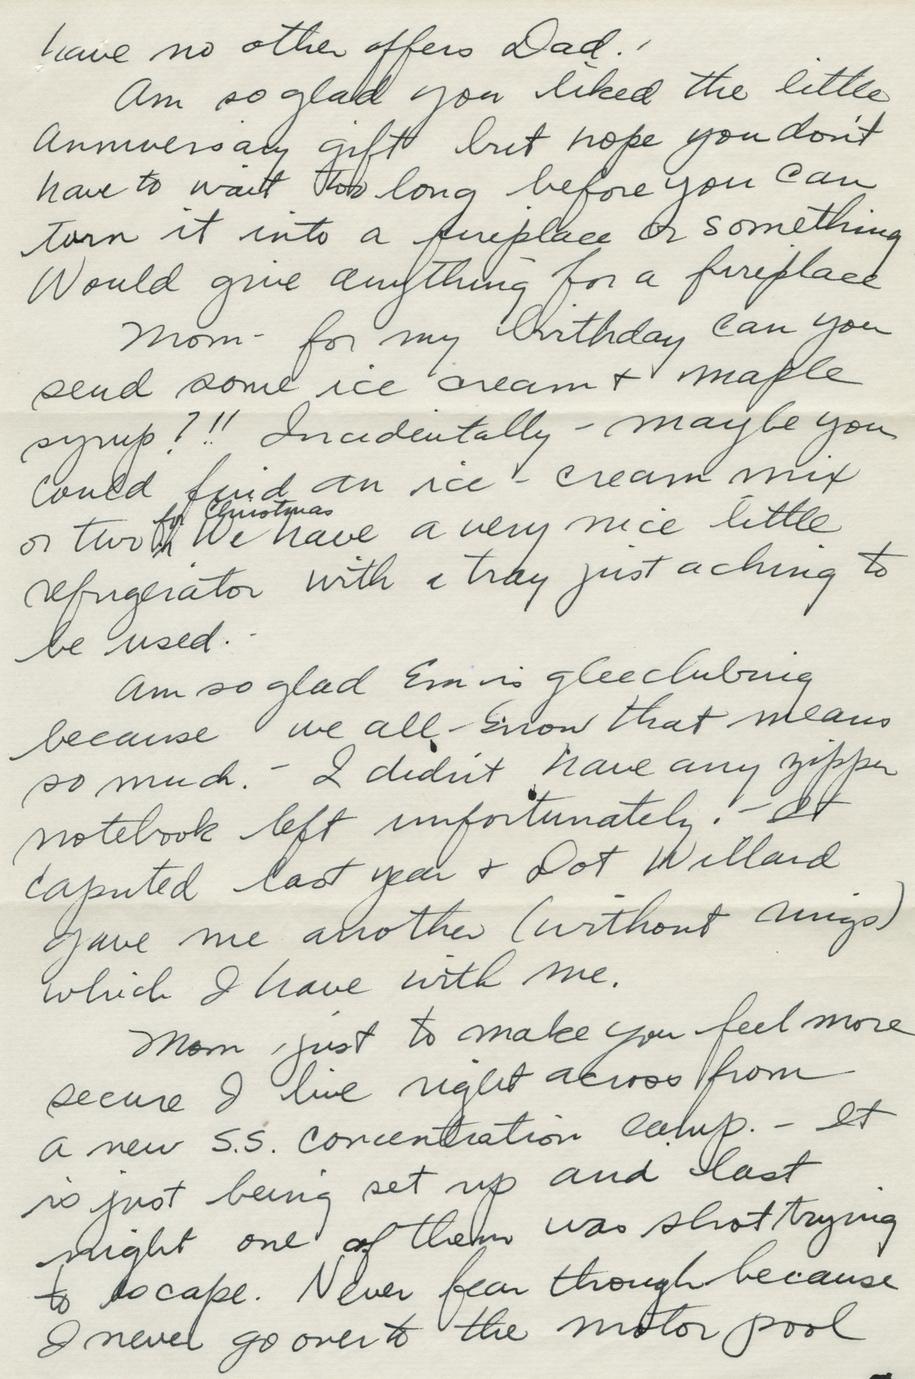 have no other offers Dad.!
Am so glad you liked the little
Anniversary gift but hope you don't
have to wait too long before you can
turn it into a fireplace or something
Would give anything for a fireplace
Mom - for my birthday can you
send some ice cream & maple
syrup?!! Incidentally - maybe you
could find an ice-cream mix
for Christmas
or two We have a very nice little
refrigerator with a tray just aching to
be used. -
Am so glad Em is gleeclubing
because we all - know that means
so much. - I didn't have any zipper
notebook left unfortunately. - It
caputed last year & Dot Willard
gave me another (without rings)
which I have with me.
Mom, just to make you feel more
secure I live right across from
a new S.S. concentration camp. - It
is just being set up and last
night one of them was shot trying
to escape. Never fear though because
I never go over to the motor pool